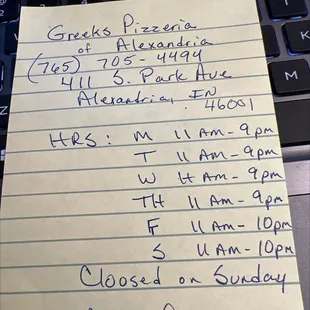 Greeks Pizzeria
of Alexandria
(765) 705-4494
411 S. Park Ave
Alexandria, IN
46001
HRS: M 11 AM - 9pm
T 11 AM - 9pm
W 11 AM - 9pm
TH 11 AM - 9pm
F 11 AM - 10pm
S 11 AM - 10pm
Cloosed on Sunday